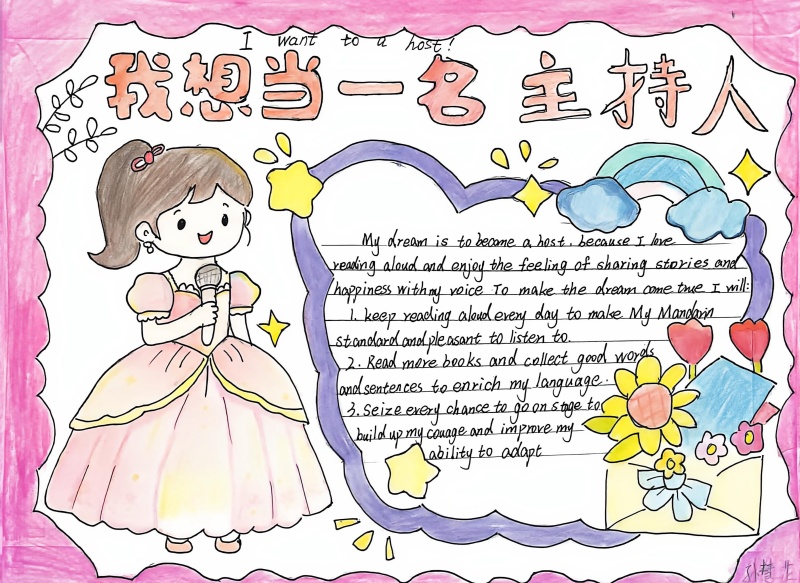 I want to a host!
我想当一名主持人
My dream is to become a host. because I love
reading aloud and enjoy the feeling of sharing stories and
happiness with my voice To make the dream come true I will:
1. keep reading aloud every day to make My Mandarin
standard and pleasant to listen to.
2. Read more books and collect good words
and sentences to enrich my language.
3. Seize every chance to go on stage to
build up my couage and improve my
ability to adapt